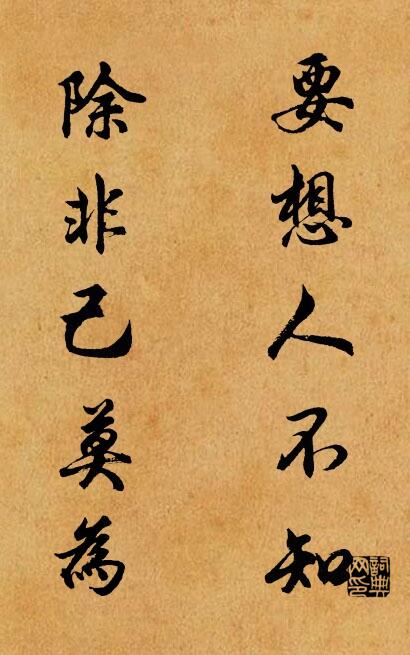 要想人不知
除非己莫為
詞典网印